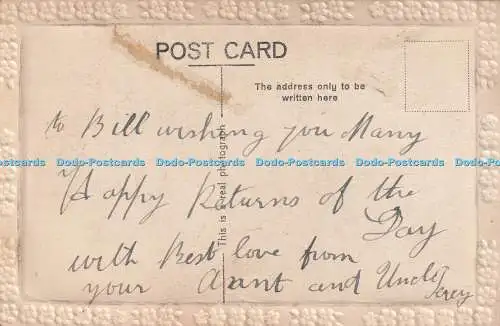 POST CARD
The address only to be
written here
This is a real photograph
to Bill wishing you Many
Dodo-Postcards Dodo-Postcards Dodo-Postcards Dodo-Postcards Dodo-Postcards
Happy Returns of the
Day
with Best love from
your Aunt and Uncle